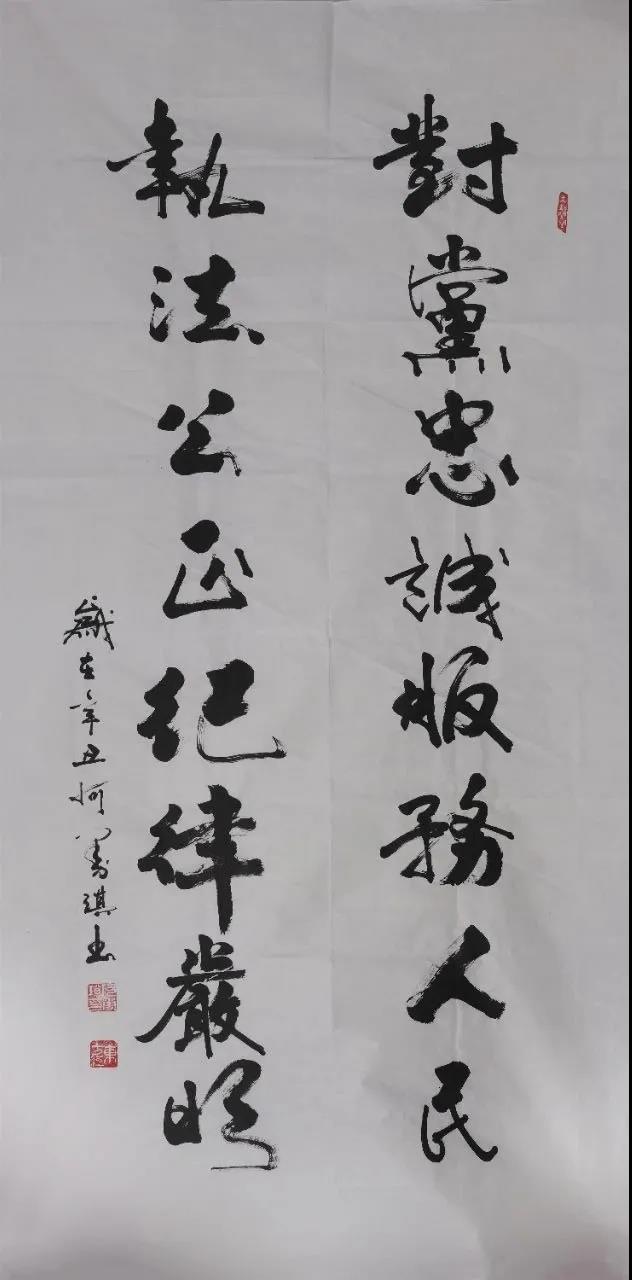 對黨忠誠服務人民
執法公正紀律嚴明
歲在辛丑